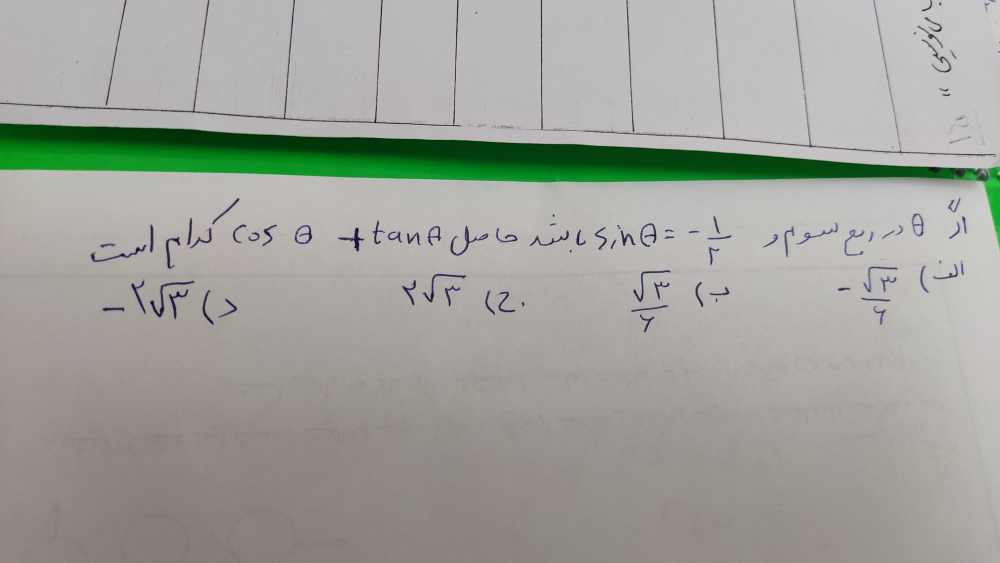 اگر θ در ربع سوم و sinθ = -۱/۲ باشد حاصل tanθ + cos θ کدام است
الف) -√۳/۶ ب) √۳/۶ ج) ۲√۳ د) -۲√۳